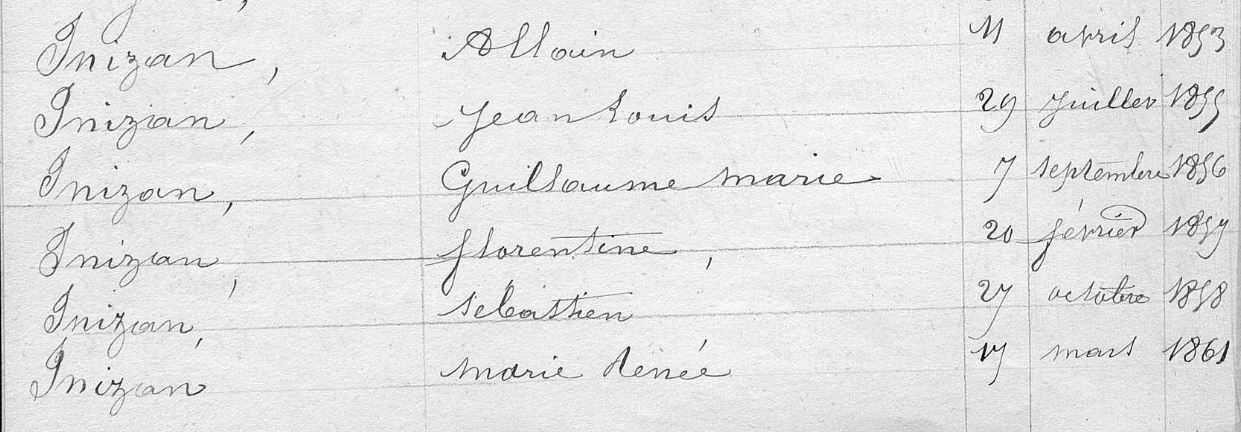 Inizan, Allain 11 avril 1853
Inizan, Jean Louis 29 juillet 1855
Inizan, Guillaume marie 7 septembre 1856
Inizan, florentine, 20 février 1857
Inizan, sebastien 27 octobre 1858
Inizan marie Renée 17 mars 1861